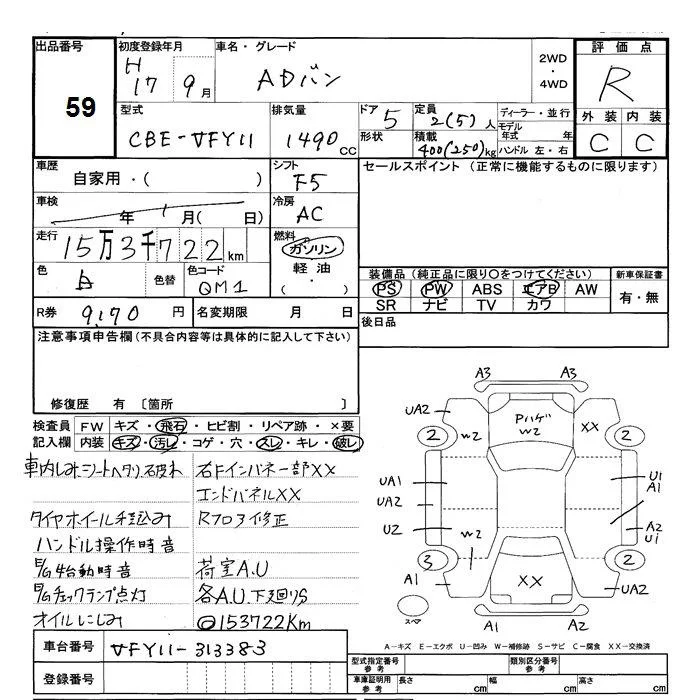 出品番号
59
初度登録年月
H
17 9月
車名・グレード
ADバン
2WD
・
4WD
評価点
R
外装 内装
C C
型式
CBE-VFY11
排気量
1490 CC
ドア 5
形状
定員 2(5)人
積載 400(250)kg
ディーラー・並行
モデル年式 年
ハンドル 左・右
車歴
自家用・( )
シフト
F5
セールスポイント(正常に機能するものに限ります)
車検
年 月( 日)
冷房
AC
走行
15万3千722km
燃料
ガソリン
軽油
・( )
色
白
色替
色コード
QM1
装備品(純正品に限り○をつけてください)
PS PW ABS エアB AW
SR ナビ TV カワ
新車保証書
有・無
R券 9,170 円
名変期限 月 日
後日品
注意事項申告欄(不具合内容等は具体的に記入して下さい)
修復歴 有 〔箇所 〕
検査員記入欄
FW キズ・飛石・ヒビ割・リペア跡・×要
内装 キズ・汚レ・コゲ・穴・スレ・キレ・破レ
車内しみ シートヘタリ 破れ
タイヤホイール手込み
ハンドル操作時音
E/G始動時音
E/Gチェックランプ点灯
オイルにじみ
右Fインパネ一部XX
エンドパネルXX
Rフロア修正
荷室A.U
各A.U 下廻りS
◎153722Km
A3 A3
UA2
PハゲW2
W2
XX
2 2
UA1
UA2
U2
W2
U1
A1
A2
U1
3 2
A1
XX
UA2
スペア
A1 A2
A-キズ E-エクボ U-凹み W-補修跡 S-サビ C-腐食 XX-交換済
車台番号
VFY11-313383
登録番号
型式指定番号 参考
類別区分番号 参考
車庫証明用 参考
長さ cm
幅 cm
高さ cm